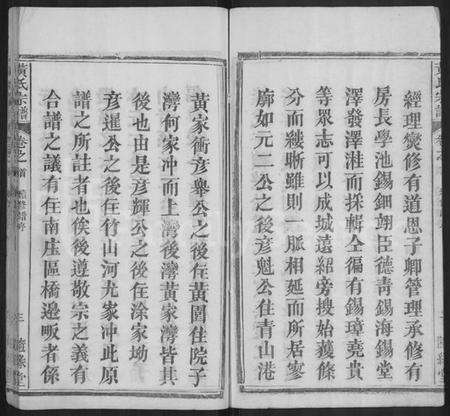 經理爕修有道思子卿管理承修有
房長學池錫鈿翊臣德青錫海錫堂
澤發澤溎而採輯仝徧有錫璋堯貴
等眾志可以成城遠紹旁搜始蔉條
分而縷晰雖則一脈相延而所居寥
廓如元二公之後彦魁公住青山港
黃家衝彦舉公之後在黃圍住院子
灣何家冲而上灣後灣黃家灣皆其
後也由是彦輝公之後住涂家坳
彦暹公之後住竹山河尤家冲此原
譜之所註者也俟後遵敬宗之義有
合譜之議有住南庄區橋邉畈者係
黃氏宗譜
卷之首